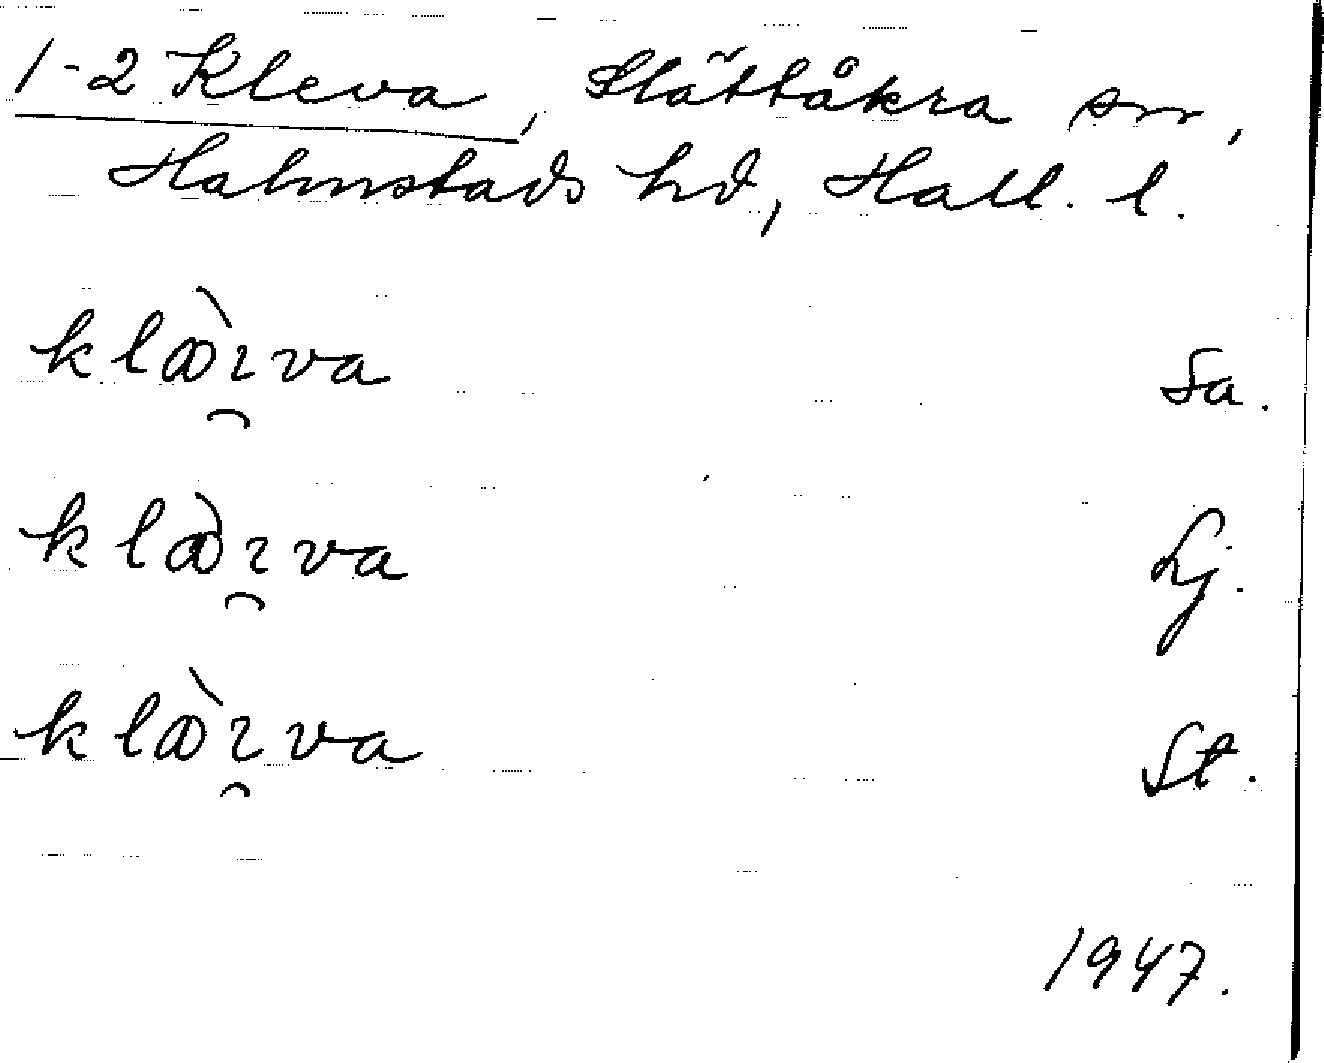 1-2 Kleva, Slättåkra sn,
Halmstads hd, Hall. l.
klæ̀ɪ̯va Sa.
klæ̀ɪ̯va Lj.
klæ̀ɪ̯va St.
1947.